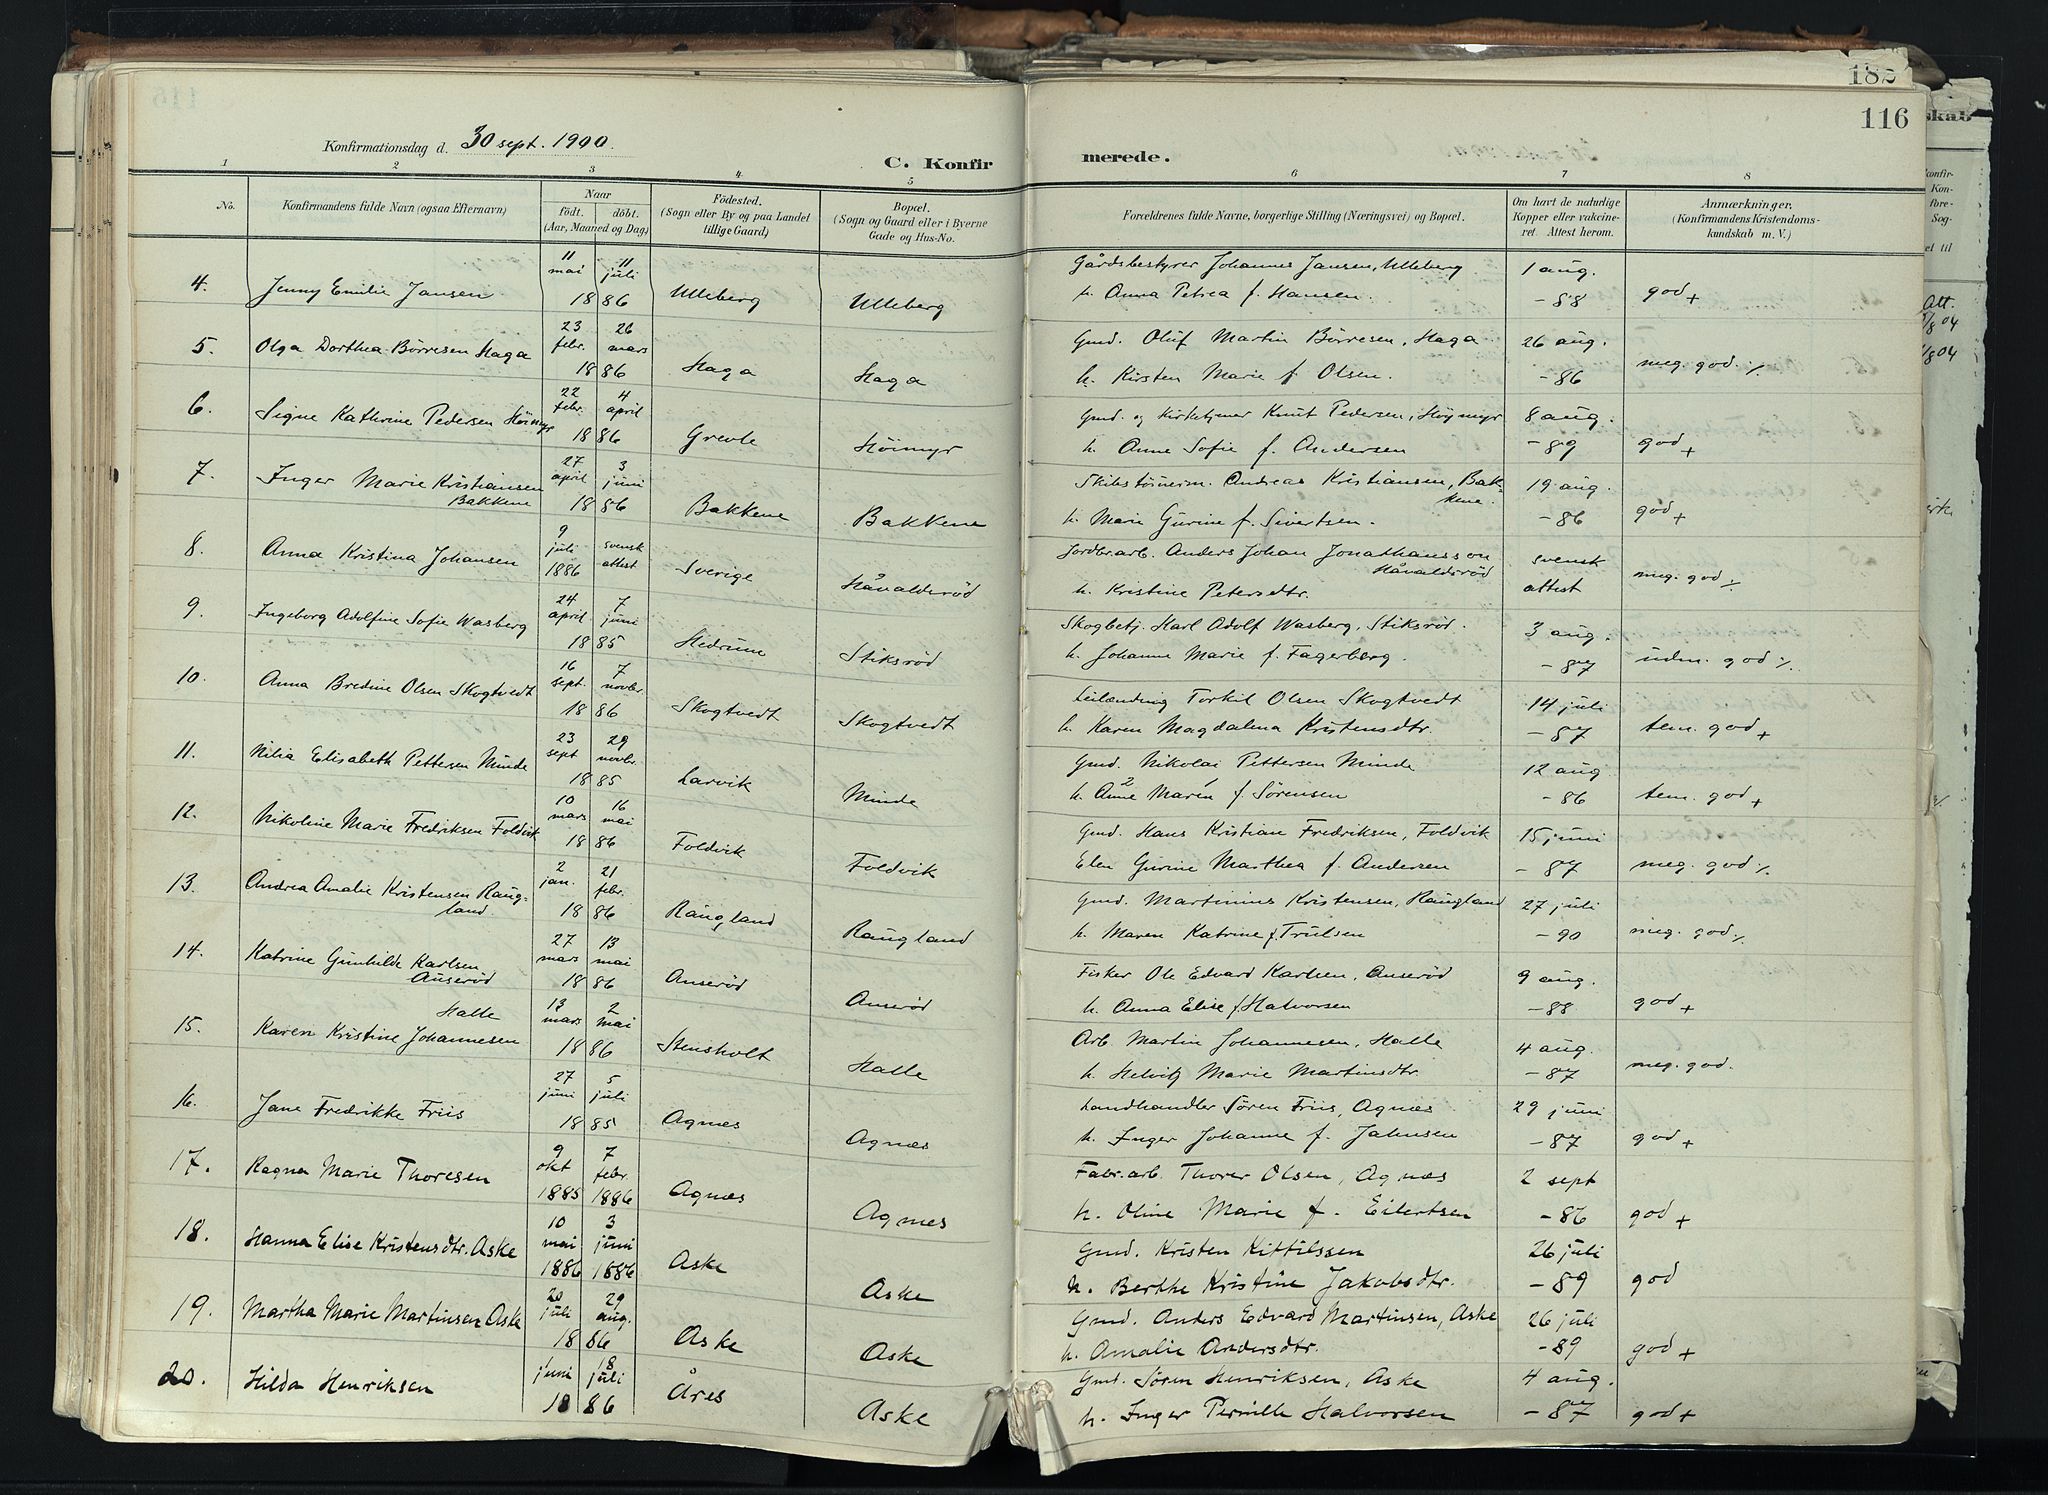 182
116
Konfirmationsdag d. 30 sept. 1900.
C. Konfirmerede.
1 2 3 4 5 6 7 8
No.
Konfirmandens fulde Navn (ogsaa Efternavn)
Naar
født. døbt.
(Aar, Maaned og Dag)
Fødested.
(Sogn eller By og paa Landet
tillige Gaard)
Bopæl.
(Sogn og Gaard eller i Byerne
Gade og Hus-No.
Forældrenes fulde Navne, borgerlige Stilling (Næringsvei) og Bopæl.
Om havt de naturlige
Kopper eller vakcine-
ret. Attest herom.
Anmærkninger.
(Konfirmandens Kristendoms-
kundskab m. V.)
4. Jenny Emilie Jansen 11 mai 11 juli 1886 Ulleberg Ulleberg Gårdsbestyrer Johannes Jansen, Ulleberg 1 aug.
h. Anna Petrea f. Hansen. -88 god +
5. Olga Dorthea Børresen Haga 23 febr. 26 mars 1886 Haga Haga Gmd. Oluf Martin Børresen, Haga 26 aug.
h. Kirsten Marie f. Olsen. -86 meg. god. %
6. Signe Kathrine Pedersen Høimyr 22 febr. 4 april 1886 Grevle Høimyr Gmd. og Kirketjener Knut Pedersen, Høymyr 8 aug.
h. Anne Sofie f. Andersen -89 god +
7. Inger Marie Kristiansen Bakkene 27 april 3 juni 1886 Bakkene Bakkene Skibstømerm. Andreas Kristiansen, Bakkene. 19 aug.
h. Marie Gurine f. Sivertsen. -86 god +
8. Anna Kristina Johansen 9 juli 1886 svensk attest Sverige Håvaldsrød Jordbr.arb. Anders Johan Jonathansson Håvaldsrød svensk
h. Kristine Petersdtr. attest meg. god %
9. Ingeborg Adolfine Sofie Wasberg 24 april 7 juni 1885 Hedrum Stiksrød Skogbetj. Karl Adolf Wasberg, Stiksrød. 3 aug.
h. Johanne Marie f. Fagerberg. -87 udm. god %
10. Anna Bredine Olsen Skogtvedt 16 sept. 7 novbr. 1886 Skogtvedt Skogtvedt Leilænding Torkil Olsen Skogtvedt 14 juli
h. Karen Magdalena Kristensdtr. -87 tem. god +
11. Nilia Elisabeth Pettersen Minde 23 sept 29 novbr. 1885 Larvik Minde Gmd. Nikolai Pettersen Minde 12 aug
h. Anne Maren f. Sørensen -86 tem. god +
12. Nikoline Marie Fredriksen Foldvik 10 mars 16 mai 1886 Foldvik Foldvik Gmd. Hans Kristian Fredriksen, Foldvik 15 juni
Elen Gurine Marthea f. Andersen -87 meg. god %
13. Andrea Amalie Kristensen Raugland. 2 jan. 21 febr. 1886 Raugland Raugland Gmd. Martinius Kristensen, Raugland 27 juli
h. Maren Katrine f. Trulsen -90 meg. god %
14. Katrine Gunhilde Karlsen Auserød 27 mars 13 mai 1886 Anserød Anserød Fisker Ole Edvard Karlsen, Anserød 9 aug.
h. Anna Elise f. Halvorsen -88 god +
15. Karen Kristine Johannesen Halle 13 mars 2 mai 1886 Stensholt Halle Arb. Martin Johannesen, Halle 4 aug.
h. Helvig Marie Martinsdtr. -87 meg. god.
16. Jane Fredrikke Friis 27 juni 5 juli 1885 Agnæs Agnæs Landhandler Søren Friis, Agnæs 29 juni
h. Inger Johanne f. Jahnsen -87 god +
17. Ragna Marie Thoresen 9 okt 1885 7 febr. 1886 Agnæs Agnes Fabr.arb. Thorer Olsen, Agnæs 2 sept
h. Oline Marie f. Eilertsen -86 god +
18. Hanna Elise Kristensdtr. Aske 10 mai 1886 3 juni 1886 Aske Aske Gmd. Kristen Kittilssen 26 juli
h. Berthe Kristine Jakobsdtr. -89 god
19. Martha Marie Martinsen Aske 20 juli 29 aug. 1886 Aske Aske Gmd. Anders Edvard Martinsen, Aske 26 juli
h. Amalie Andersdtr. -89 god +
20. Hilda Henriksen 1 juni 18 juli 1886 Åres Aske Gmd. Søren Henriksen, Aske 4 aug.
h. Inger Pernille Halvorsen -87 god +